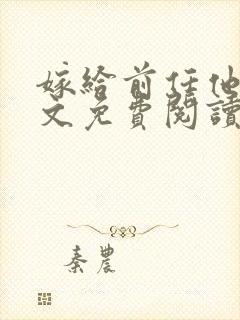 嫁给前任他
文免費閱讀
秦農